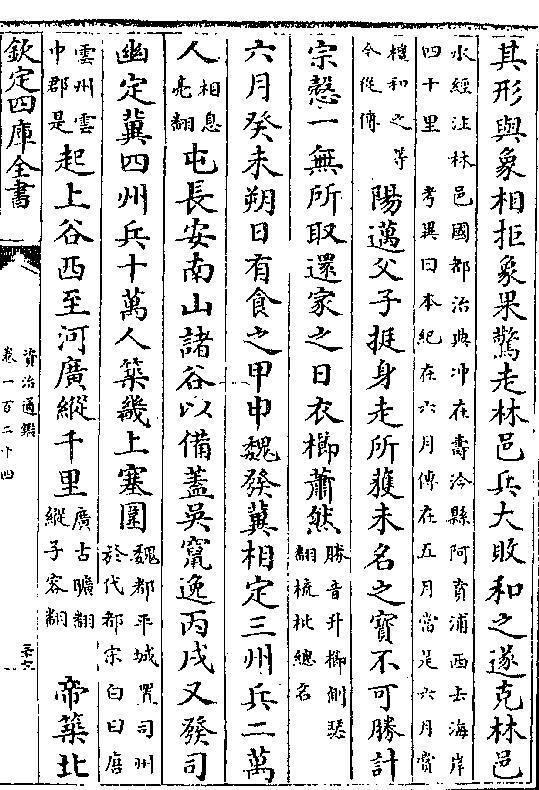 其形與象相拒象果驚走林邑兵大敗和之遂克林邑
水經注林邑國都治典冲在壽泠縣阿賁浦西去海岸
四十里 考異曰本紀在六月傳在五月當是六月賞
檀和之等
今從傳
陽邁父子挺身走所獲未名之寶不可勝計
宗慤一無所取還家之日衣櫛蕭然
勝音升櫛側瑟
翻梳枇總名
六月癸未朔日有食之甲申魏發冀相定三州兵二萬
人
相息
亮翻
屯長安南山諸谷以備蓋吳竄逸丙戌又發司
幽定冀四州兵十萬人築畿上塞圍
魏都平城置司州
於代都宋白曰唐
雲州雲
中郡是
起上谷西至河廣縱千里
廣古曠翻
縱子容翻
帝築北
欽定四庫全書
資治通鑑
卷一百二十四